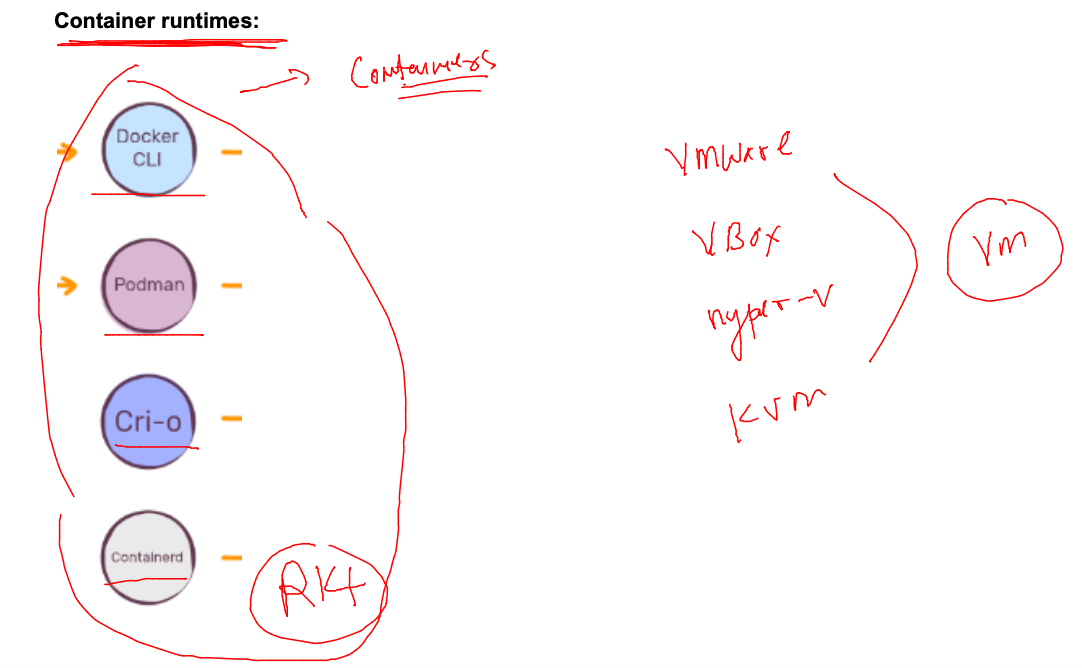 Container runtimes:
Containers
Docker
CLI
Podman
Cri-o
Containerd
RKt
VMWare
VBox
hyper-V
KVM
VM